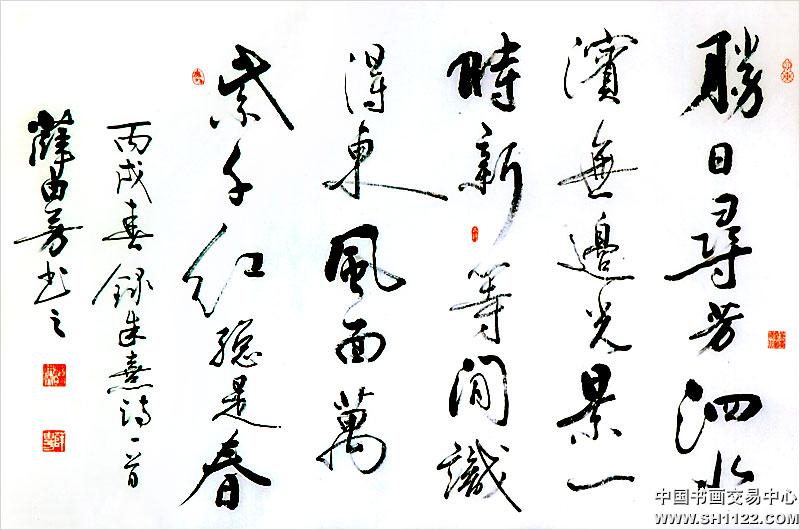 勝日尋芳泗水
濱無邊光景一
時新等閒識
得東風面萬
紫千紅總是春
丙戌春錄朱熹詩一首
薛由芳书之
中国书画交易中心
WWW.SH1122.COM